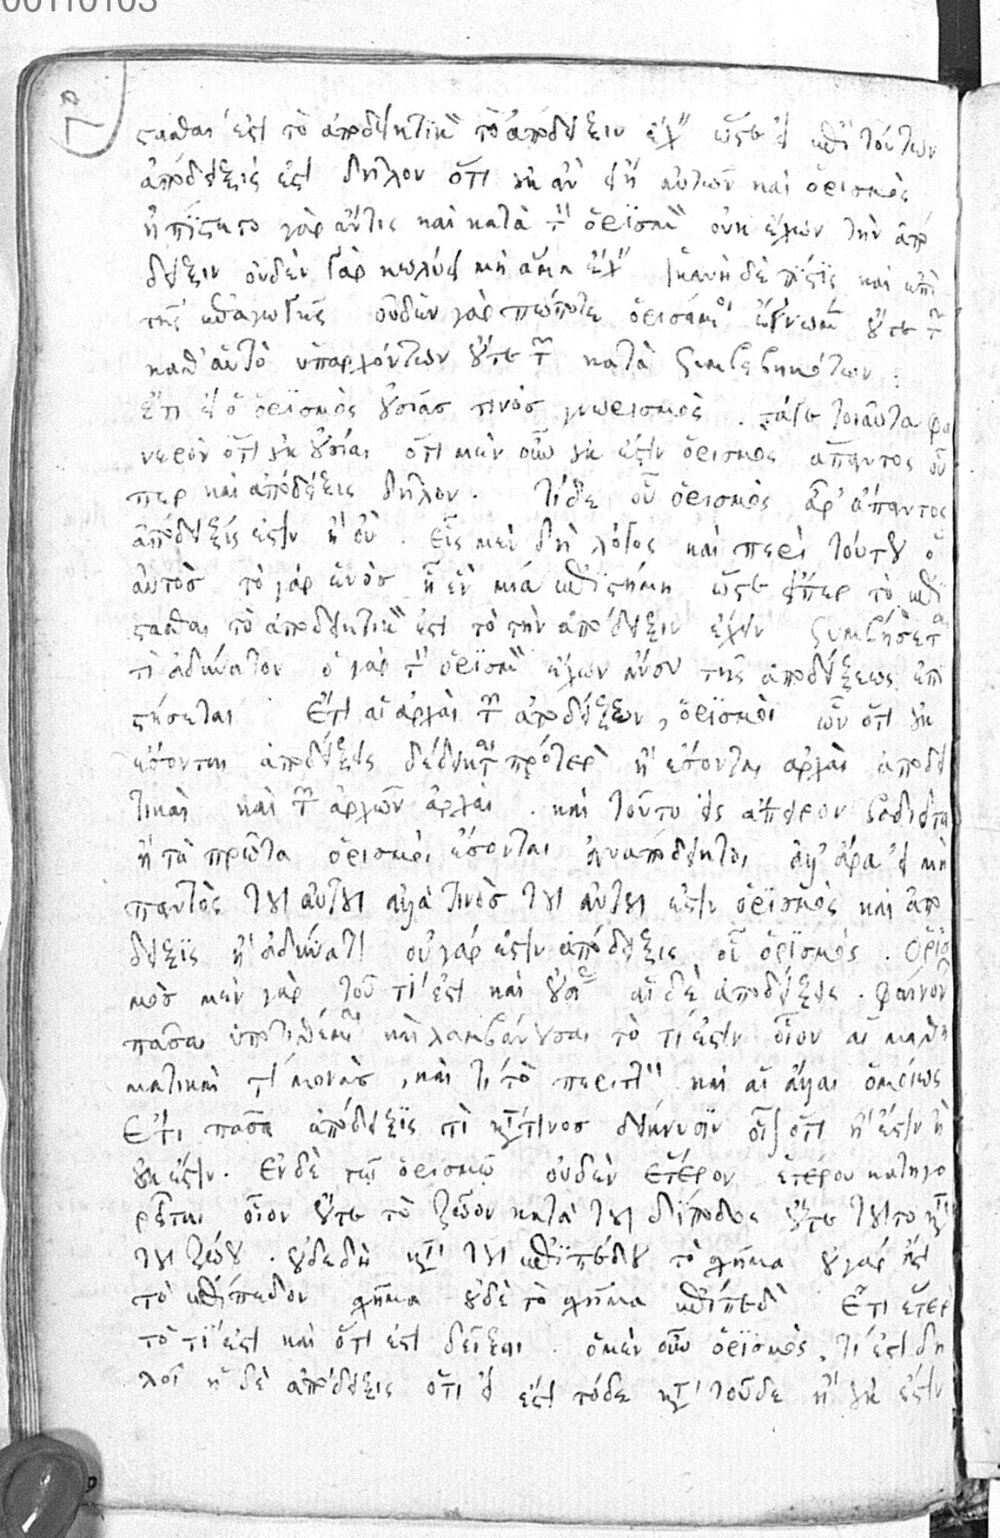 00110103
στασθαί ἐστι τὸ ἀποδεικτικὸν τὸ ἀπόδειξιν ἔχειν ὥστε εἰ ἐπὶ τούτων
ἀπόδειξίς ἐστι δῆλον ὅτι οὐκ ἂν εἴη αὐτῶν καὶ ὁρισμὸς
ἠπίστατο γὰρ ἄν τις καὶ κατὰ τὸν ὁρισμὸν οὐκ ἔχων τὴν ἀπό
δειξιν οὐδὲν γὰρ κωλύει μὴ ἅμα ἔχειν ἱκανὴ δὲ πίστις καὶ ἐπὶ
τῆς ἐπαγωγῆς οὐδὲν γὰρ πώποτε ὁρισάμενοι ἔγνωμεν οὔτε τῶν
καθ' αὑτὸ ὑπαρχόντων οὔτε τῶν κατὰ συμβεβηκότων :
ἔτι εἰ ὁ ὁρισμὸς οὐσίας τινὸς γνωρισμὸς . τάγε τοιαῦτα φα
νερὸν ὅτι οὐκ οὐσίαι ὅτι μὲν οὖν οὐκ ἔστιν ὁρισμὸς ἅπαντος οὗ
περ καὶ ἀπόδειξις δῆλον . τί δὲ οὗ ὁρισμὸς ἆρ' ἅπαντος
ἀπόδειξίς ἐστιν ἢ οὔ . εἷς μὲν δὴ λόγος καὶ περὶ τούτου ὁ
αὐτὸς τὸ γὰρ ἑνὸς ᾗ ἓν μία ἐπιστήμη ὥστε εἴπερ τὸ ἐπί
στασθαι τὸ ἀποδεικτικὸν ἐστὶ τὸ τὴν ἀπόδειξιν ἔχειν συμβήσεταί
τι ἀδύνατον ὁ γὰρ τὸν ὁρισμὸν ἔχων ἄνευ τῆς ἀποδείξεως ἐπι
στήσεται ἔτι αἱ ἀρχαὶ τῶν ἀποδείξεων , ὁρισμοὶ ὧν ὅτι οὐκ
ἔσονται ἀποδείξεις δέδεικται πρότερον ἢ ἔσονται ἀρχαὶ ἀποδει
τικαὶ καὶ τῶν ἀρχῶν ἀρχαὶ . καὶ τοῦτο εἰς ἄπειρον βαδιεῖται
ἢ τὰ πρῶτα ὁρισμοὶ ἔσονται ἀναπόδεικτοι ἀλλ' ἆρα εἰ μὴ
παντὸς τοῦ αὐτοῦ ἀλλὰ τινὸς τοῦ αὐτοῦ ἐστιν ὁρισμὸς καὶ ἀπό
δειξις ἢ ἀδύνατον οὐ γάρ ἐστιν ἀπόδειξις οὗ ὁρισμός . ὁρισ
μὸς μὲν γὰρ τοῦ τί ἐστι καὶ οὐσίας αἱ δὲ ἀποδείξεις . φαίνον
πᾶσαι ὑποτιθέμεναι καὶ λαμβάνουσαι τὸ τί ἐστιν οἷον αἱ μαθη
ματικαὶ τί μονὰς , καὶ τί τὸ περιττὸν καὶ αἱ ἄλλαι ὁμοίως
ἔτι πᾶσα ἀπόδειξις τὶ κατά τινος δείκνυσιν οἷον ὅτι ἢ ἔστιν ἢ
οὐκ ἔστιν . ἐν δὲ τῷ ὁρισμῷ οὐδὲν ἕτερον ἑτέρου κατηγο
ρεῖται οἷον οὔτε τὸ ζῶον κατὰ τοῦ δίποδος οὔτε τοῦτο κατὰ
τοῦ ζώου . οὐδὲ δὴ κατὰ τοῦ ἐπιπέδου τὸ σχῆμα οὐ γάρ ἐστι
τὸ ἐπίπεδον σχῆμα οὐδὲ τὸ σχῆμα ἐπίπεδον ἔτι ἕτερον
τὸ τί ἐστι καὶ ὅτι ἐστὶ δεῖξαι . ὁ μὲν οὖν ὁρισμὸς , τί ἐστι δη
λοῖ ἡ δὲ ἀπόδειξις ὅτι εἰ ἔστι τόδε κατὰ τοῦδε ἢ οὐκ ἔστιν